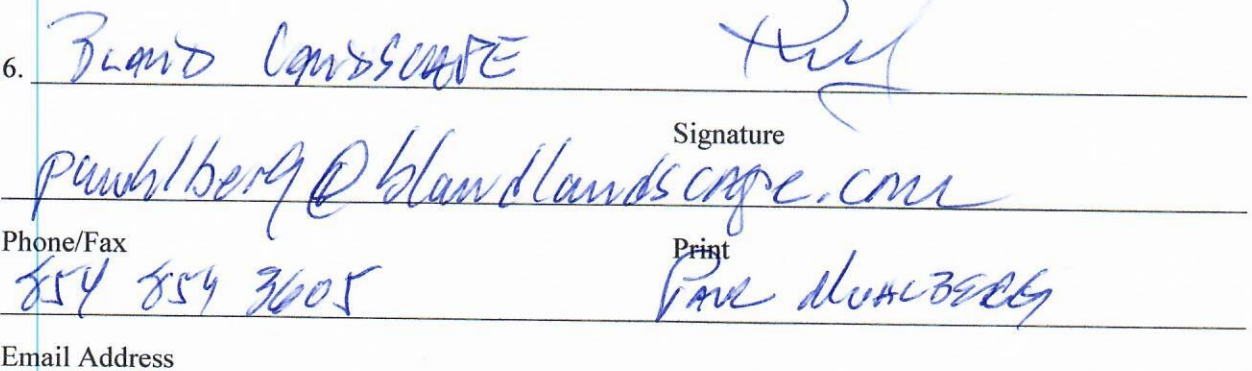 6. BLAND LANDSCAPE
Signature
pmuhlberg@blandlandscape.com
Phone/Fax Print
854 854 3605 PAUL MUHLBERG
Email Address